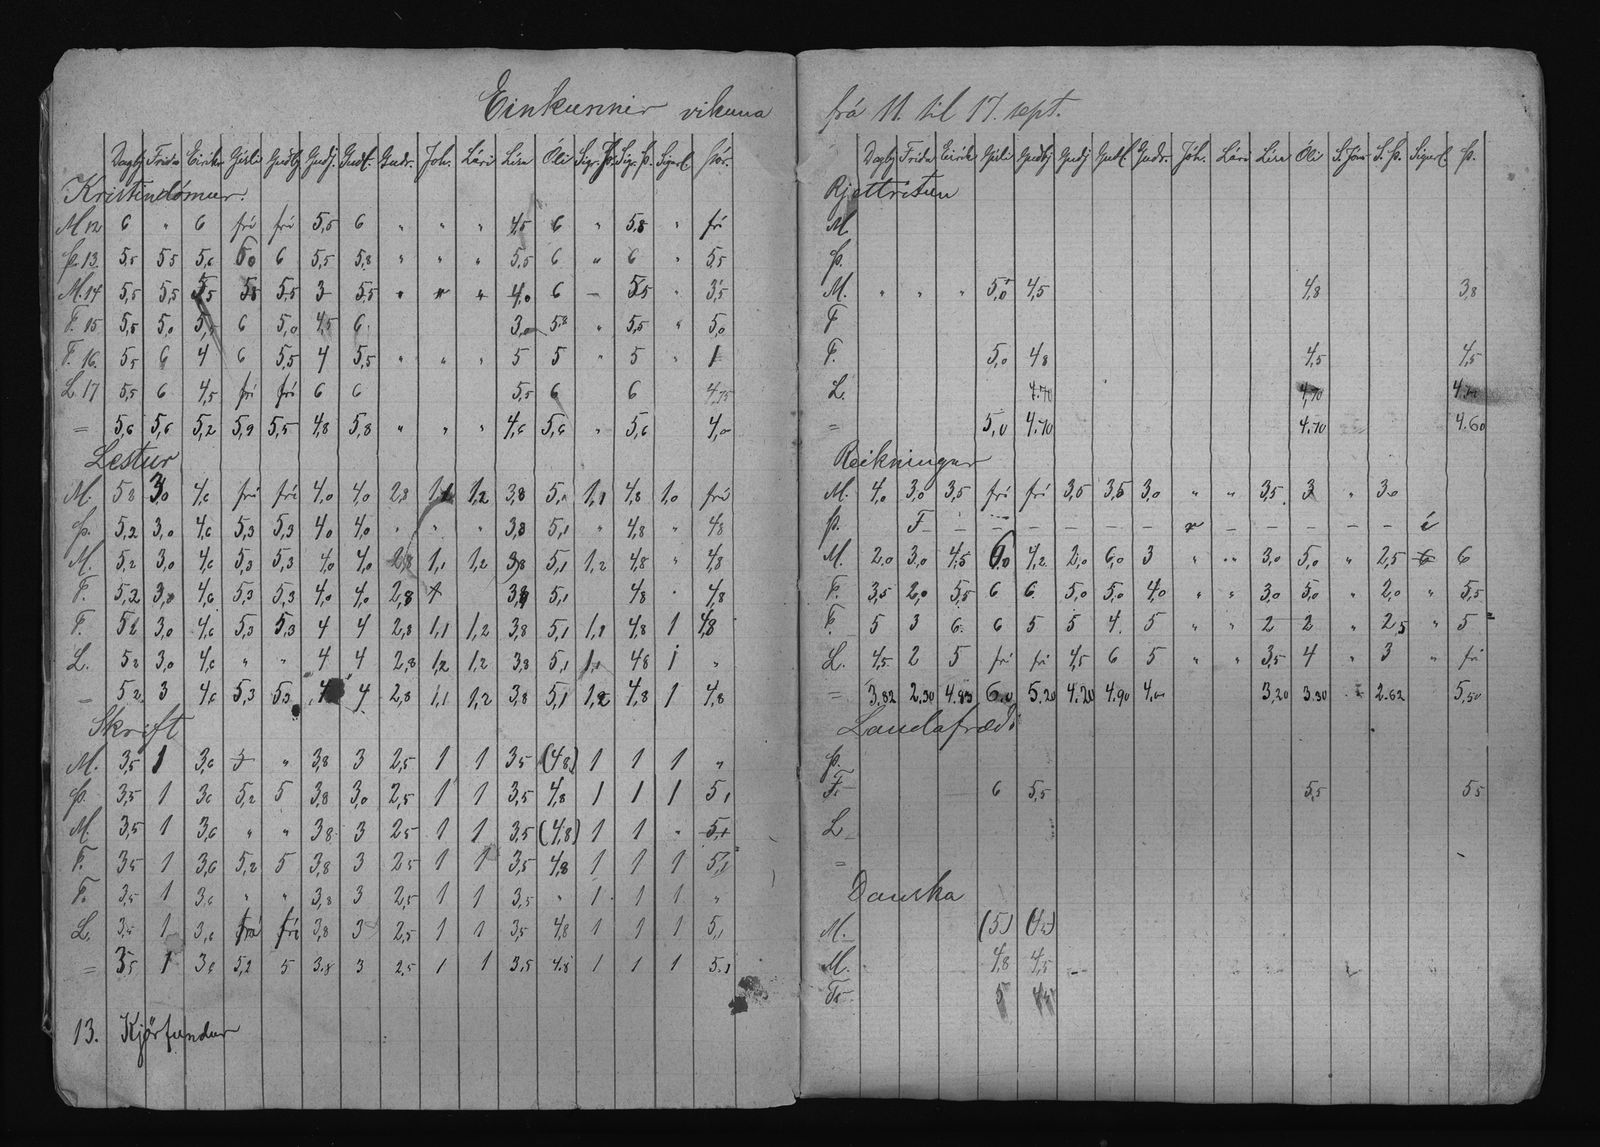 Einkunnir vikuna
Dagbj Frida Eirík Gísli Guðbj Guðj. Guðl. Guðr. Joh. Lári Lína Óli Sigr. Sigr. Þ. Sigurl. Þór.
Kristindómur.
M 12 6 " 6 frí frí 5,5 6 " " " 4,5 6 " 5,8 " frí
Þ. 13. 5,5 5,5 5,6 6,0 6 5,5 5,8 " " " 5,5 6 " 6 " 5,5
M. 14 5,5 5,5 5,5 5,5 5,5 3 5,5 " " " 4,0 6 – 5,5 " 3,5
F. 15 5,5 5,0 6 5,0 4,5 6 3,0 5,8 " 5,5 " 5,0
F. 16. 5,5 6 4 6 5,5 4 5,5 " " " 5 5 " 5 " 1
L. 17 5,5 6 4,5 frí frí 6 6 5,5 6 6 4,75
= 5,6 5,6 5,2 5,9 5,5 4,8 5,8 " " " 4,6 5,6 " 5,6 4,0
Lestur
M. 5,2 3,0 4,6 frí frí 4,0 4,0 2,8 1,1 1,2 3,8 5,1 1,1 4,8 1,0 frí
Þ. 5,2 3,0 4,6 5,3 5,3 4,0 4,0 " " " 3,8 5,1 " 4,8 " 4,8
M. 5,2 3,0 4,6 5,3 5,3 4,0 4,0 2,8 1,1 1,2 3,8 5,1 1,2 4,8 " 4,8
F. 5,2 3,0 4,6 5,3 5,3 4,0 4,0 2,8 1 3,8 5,1 4,8 " 4,8
F. 5,2 3,0 4,6 5,3 5,3 4 4 2,8 1,1 1,2 3,8 5,1 1,1 4,8 1 4,8
L. 5,2 3,0 4,6 " " 4 4 2,8 1,2 1,2 3,8 5,1 1,1 4,8 1 "
= 5,2 3 4,6 5,3 5,3 4 4 2,8 1,1 1,2 3,8 5,1 1,2 4,8 1 4,8
Skrift
M. 3,5 1 3,6 " 3,8 3 2,5 1 1 3,5 (4,8) 1 1 1 "
Þ. 3,5 1 3,6 5,2 5 3,8 3,0 2,5 1 1 3,5 4,8 1 1 1 5,1
M. 3,5 1 3,6 " " 3,8 3 2,5 1 1 3,5 (4,8) 1 1 " 5,1
F. 3,5 1 3,6 5,2 5 3,8 3 2,5 1 1 3,5 4,8 1 1 1 5,1
F. 3,5 1 3,6 " " 3,8 3 2,5 1 1 3,5 " 1 1 1 "
L. 3,5 1 3,6 frí frí 3,8 3 2,5 1 1 3,5 4,8 1 1 1 5,1
= 3,5 1 3,6 5,2 5 3,8 3 2,5 1 1 3,5 4,8 1 1 1 5,1
13. Kjörfundur
frá 11. til 17. sept.
Dagbj Frida Eirík Gísli Guðbj Guðj Guðl. Guðr. Jóh. Lári Lína Óli S. Jóns S. Þ. Sigurl. Þ.
Rjettritun
M.
Þ.
M. " " " 5,0 4,5 4,8 3,8
F
F. 5,0 4,8 4,5 4,5
L. 4.70 4,70 4.70
= 5,0 4.70 4.70 4.60
Reikningur
M. 4,0 3,0 3,5 frí frí 3,5 3,5 3,0 " " 3,5 3 " 3,0
Þ. F – – – – – – – – – – – –
M. 2,0 3,0 4,5 6,0 4,2 2,0 6,0 3 " " 3,0 5,0 " 2,5 6 6
F. 3,5 2,0 5,5 6 6 5,0 5,0 4,0 " " 3,0 5,0 " 2,0 " 5,5
F. 5 3 6 6 5 5 4 5 " " 2 2 " 2,5 " 5
L. 4,5 2 5 frí frí 4,5 6 5 " " 3,5 4 " 3 " frí
= 3.82 2.30 4.83 6.0 5.20 4.20 4.90 4,00 3.20 3.30 2.62 5,50
Landafræði
Þ.
F. 6 5,5 5,5 5,5
L
=
Danska
M. (5) (4,5)
M. 4,8 4,5
F. 5